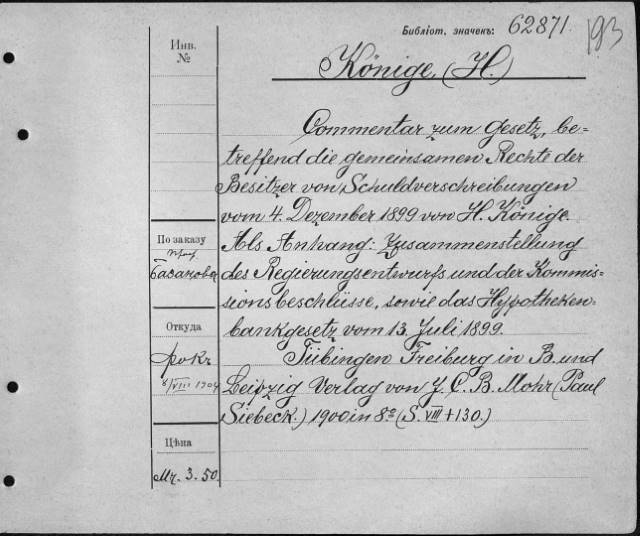 Библіот. значекъ: 62871. 193
Инв. №
Könige, (H.)
Commentar zum Gesetz, be-
treffend die gemeinsamen Rechte der
Besitzer von Schuldverschreibungen
vom 4. Dezember 1899 von H. Könige.
Als Anhang: Zusammenstellung
des Regierungsentwurfs und der Kommis-
sionsbeschlüsse, sowie das Hypotheken-
bankgesetz vom 13. Juli 1899.
Tübingen Freiburg in B. und
Leipzig Verlag von J. C. B. Mohr (Paul
Siebeck.) 1900 in 8º (S. VIII + 130.)
По заказу
проф.
Базанова
Откуда
8/VIII 1904
Цѣна
Mr. 3.50